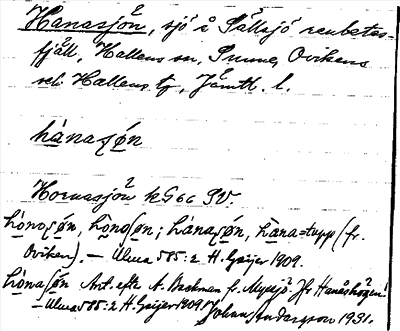 Hanasjön, sjö å Sällsjö renbetes-
fjäll, Hallens sn, Sunne, Ovikens
och Hallens tg, Jämtl. l.
hànaʃǿn
Hornasjön kG66 SV.
hònoʃǿn, hǫnoʃǿn; hànaʃǿn, hàna=tupp (fr.
Oviken). — Ulma 585:2 H. Geijer 1909.
hònaʃǿn Ant. efter A. Backman fr. Myssjö. Jfr Hanåshögen
— Ulma 585:2 H. Geijer 1909. Johan Andersson 1931.